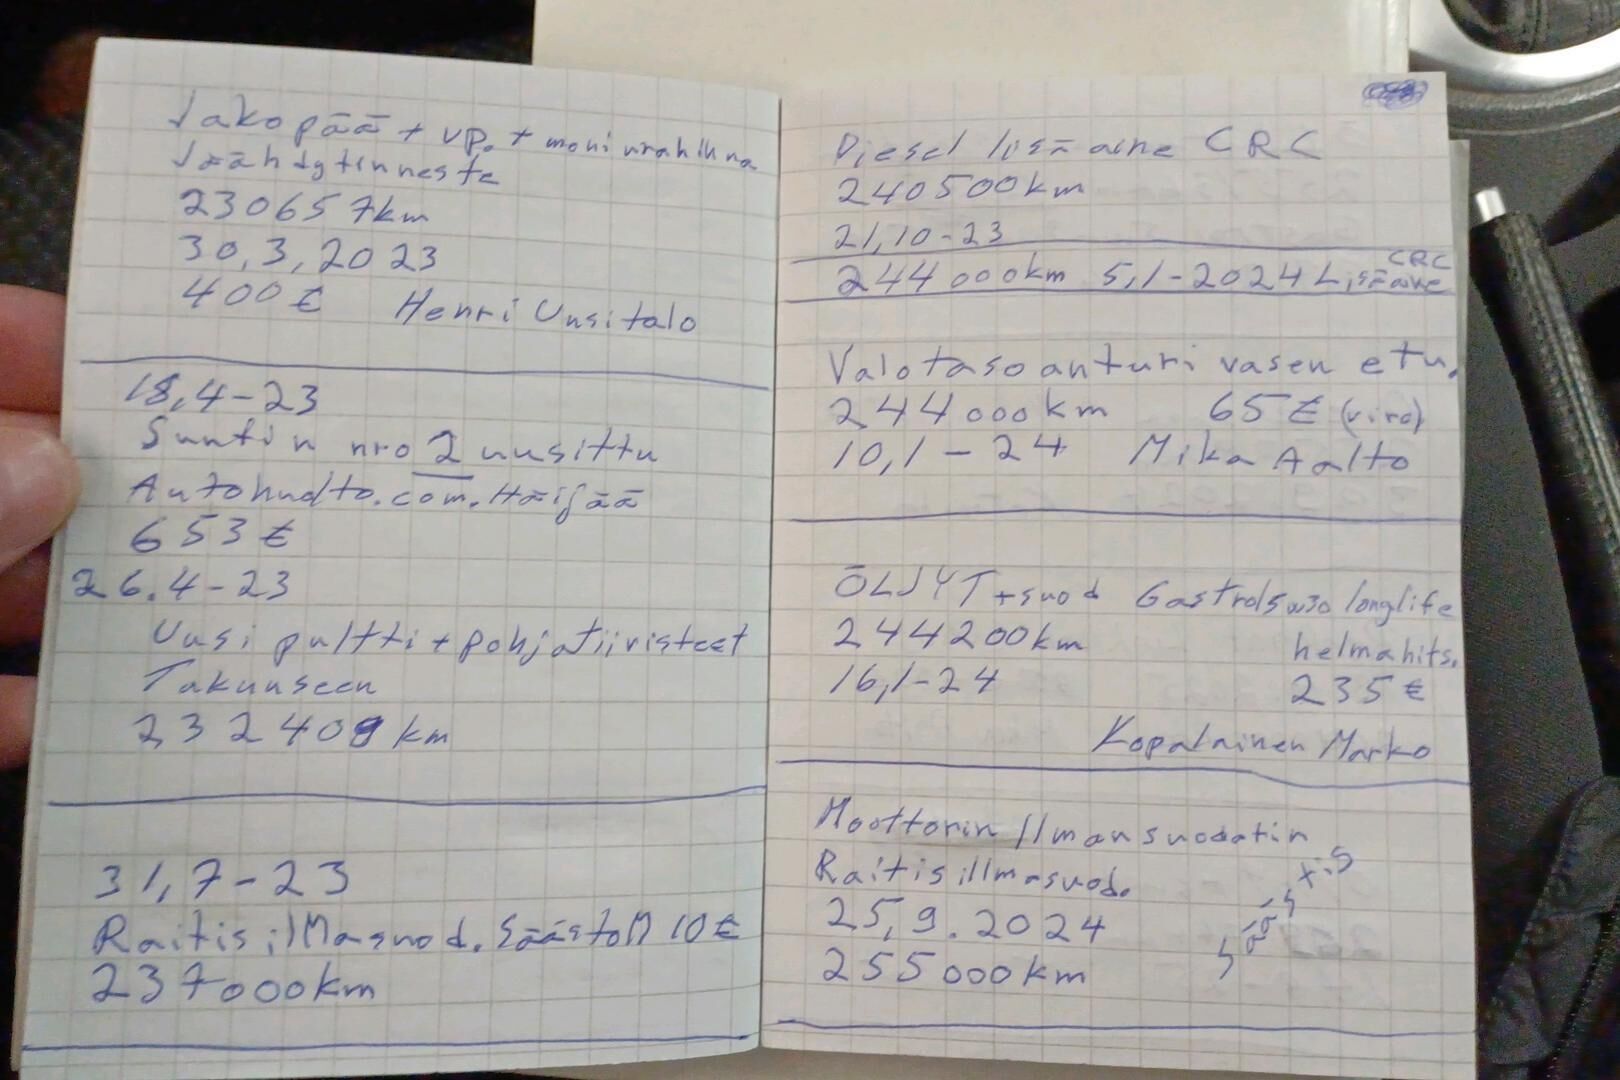 Jakopää + vp. + moniurahihna
Jäähdytinneste
230657km
30,3,2023
400€ Henri Uusitalo
18,4-23
Suutin nro 2 uusittu
Autohudto.com. Häijää
653€
26.4-23
Uusi pultti + pohjatiivisteet
Takuuseen
232409 km
31,7-23
Raitisilmasuod. Säästom 10€
237000km
Diesel lisä aine CRC
240500km
21,10-23
244 000km 5,1-2024 Lisäaine CRC
Valotasoanturi vasen etu.
244000km 65€ (viro)
10,1-24 Mika Aalto
ÖLJYT+suod Gastrol5w30 longlife
244200km helmahits.
16,1-24 235€
Kopalainen Marko
Moottorin Ilmansuodatin
Raitisillmasuod.
25,9.2024
255000km